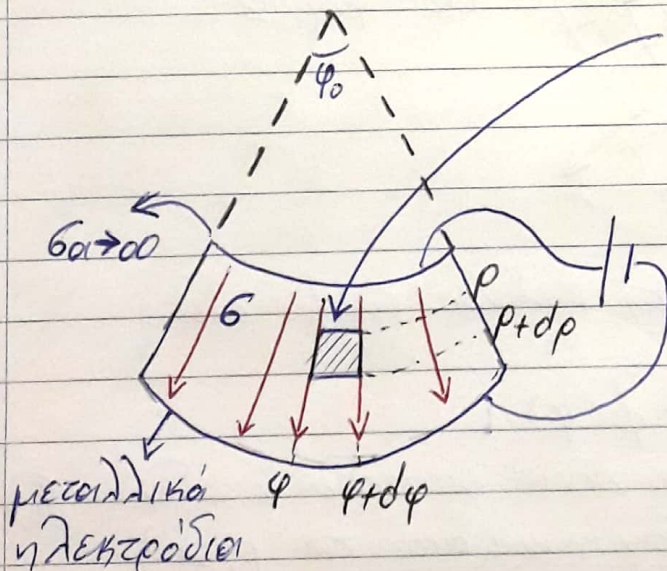 φ₀
σα→∞
σ
ρ
ρ+dρ
φ φ+dφ
μεταλλικά
ηλεκτρόδια